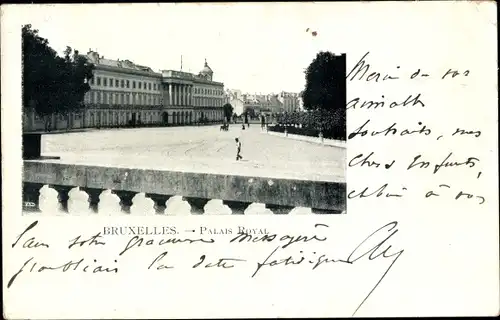 Merci de vos
aimables
souhaits, mes
chers Enfants,
et bien à vous
BRUXELLES. — PALAIS ROYAL
Sans votre gracieux message
j'oubliais la date fatidique